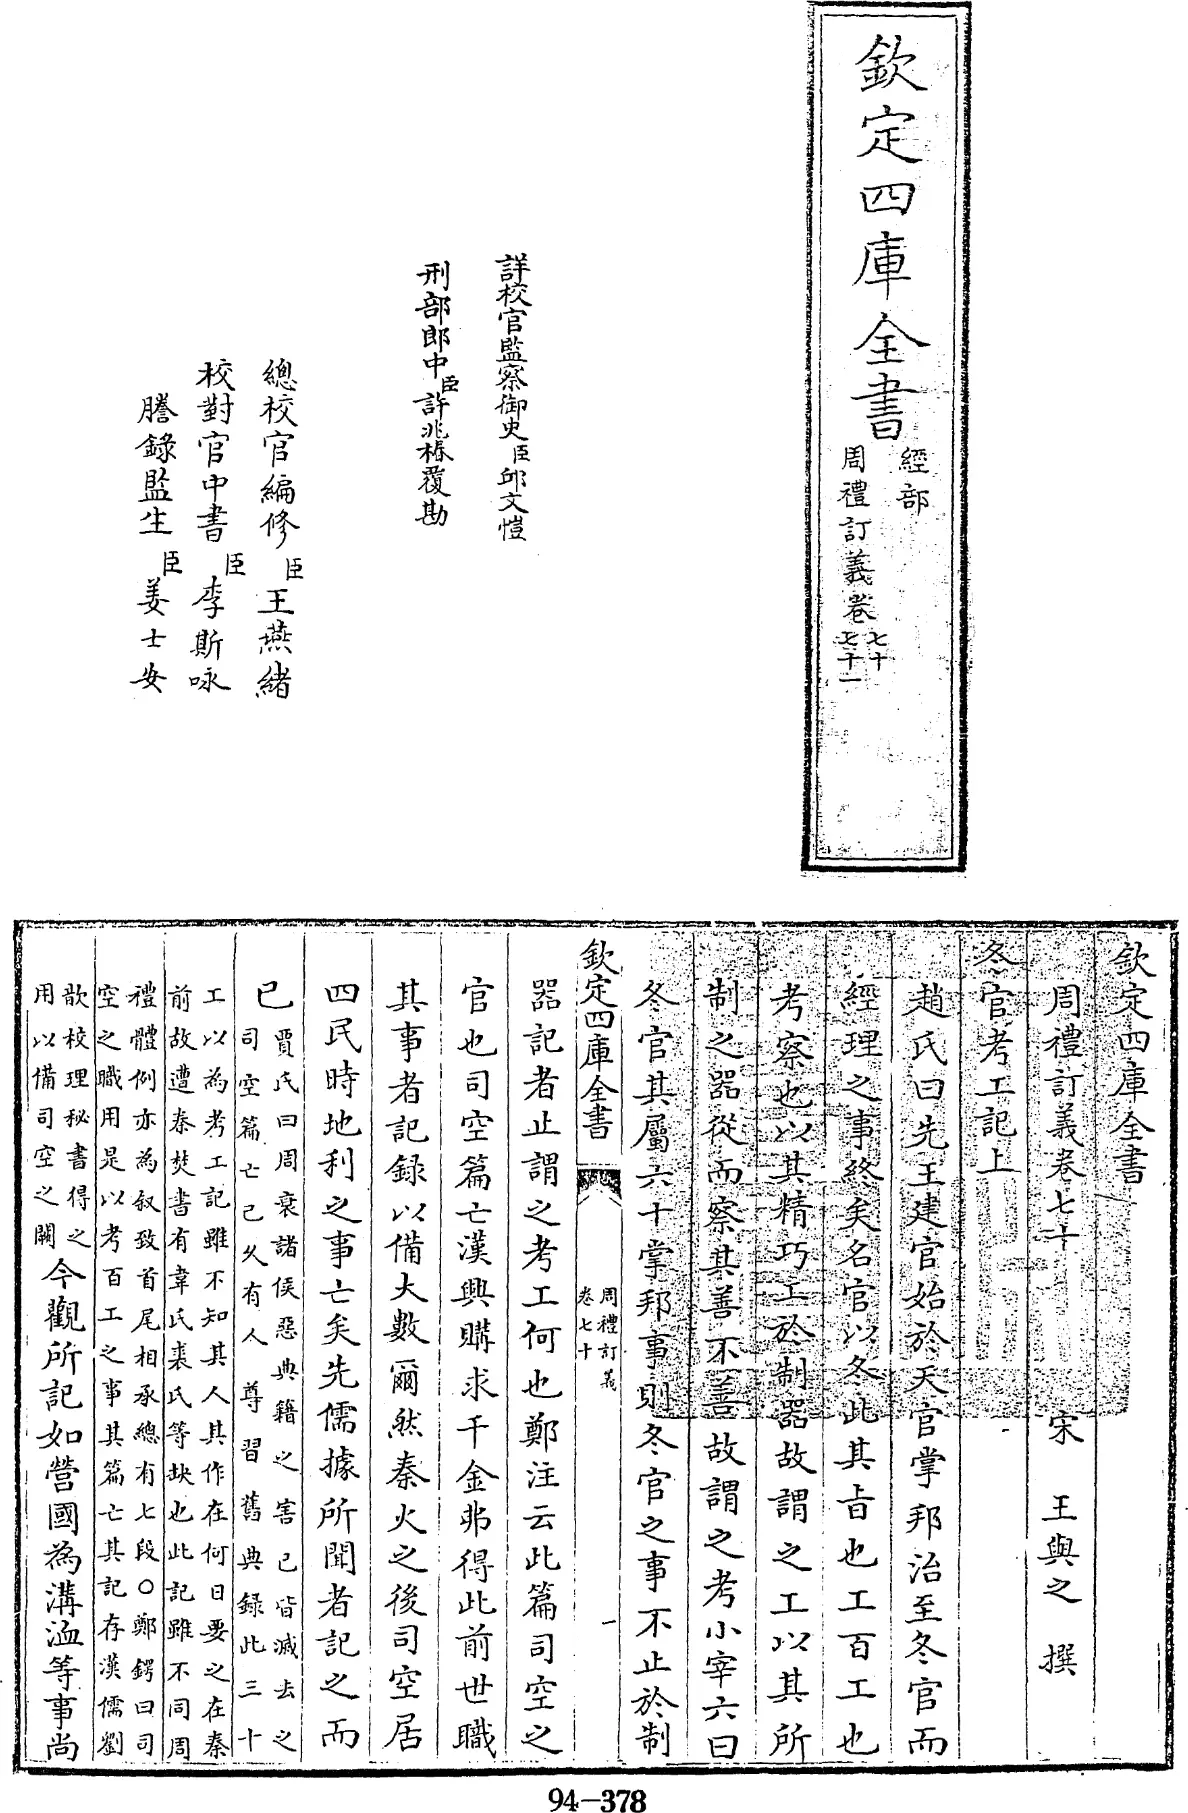 欽定四庫全書
經部
周禮訂義卷七十
七十一
詳校官監察御史臣邱文愷
刑部郎中臣許兆椿覆勘
總校官編修臣王燕緒
校對官中書臣李斯咏
謄錄監生臣姜士安
欽定四庫全書
周禮訂義卷七十
宋 王與之 撰
冬官考工記上
趙氏曰先王建官始於天官掌邦治至冬官而
經理之事終矣名官以冬此其旨也工百工也
考察也以其精巧工於制器故謂之工以其所
制之器從而察其善不善故謂之考小宰六曰
冬官其屬六十掌邦事則冬官之事不止於制
欽定四庫全書
周禮訂義
卷七十
一
器記者止謂之考工何也鄭注云此篇司空之
官也司空篇亡漢興購求千金弗得此前世職
其事者記録以備大數爾然秦火之後司空居
四民時地利之事亡矣先儒據所聞者記之而
已
賈氏曰周衰諸侯惡典籍之害已皆滅去之
司空篇亡已久有人尊習舊典録此三十
工以為考工記雖不知其人其作在何日要之在秦
前故遭秦焚書有韋氏裘氏等缺也此記雖不同周
禮體例亦為叙致首尾相承總有七段○鄭鍔曰司
空之職用是以考百工之事其篇亡其記存漢儒劉
歆校理秘書得之
用以備司空之闕
今觀所記如營國為溝洫等事尚
94-378